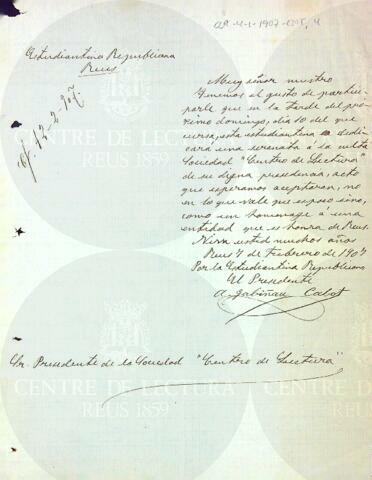 QR-4-1-1907-COR, 4
Estudiantina Republicana
Reus
Muy señor nuestro
Tenemos el gusto de partici-
parle que en la tarde del pro-
ximo domingo, dia 10 del que
cursa, esta estudiantina dedi-
cará una serenata á la culta
Sociedad "Centro de Lectura"
de su digna presidencia, acto
que esperamos aceptaran, no
en lo que vale que es poco sino,
como un homenage á una
entidad que es honra de Reus.
Viva usted muchos años
Reus 7 de Febrero de 1907
Por la Estudiantina Republicana
El Presidente
Calbet
Sr. Presidente de la Sociedad "Centro de Lectura"
12-2-907
CENTRE DE LECTURA
REUS 1859
CENTRE DE LECTURA
REUS 1859